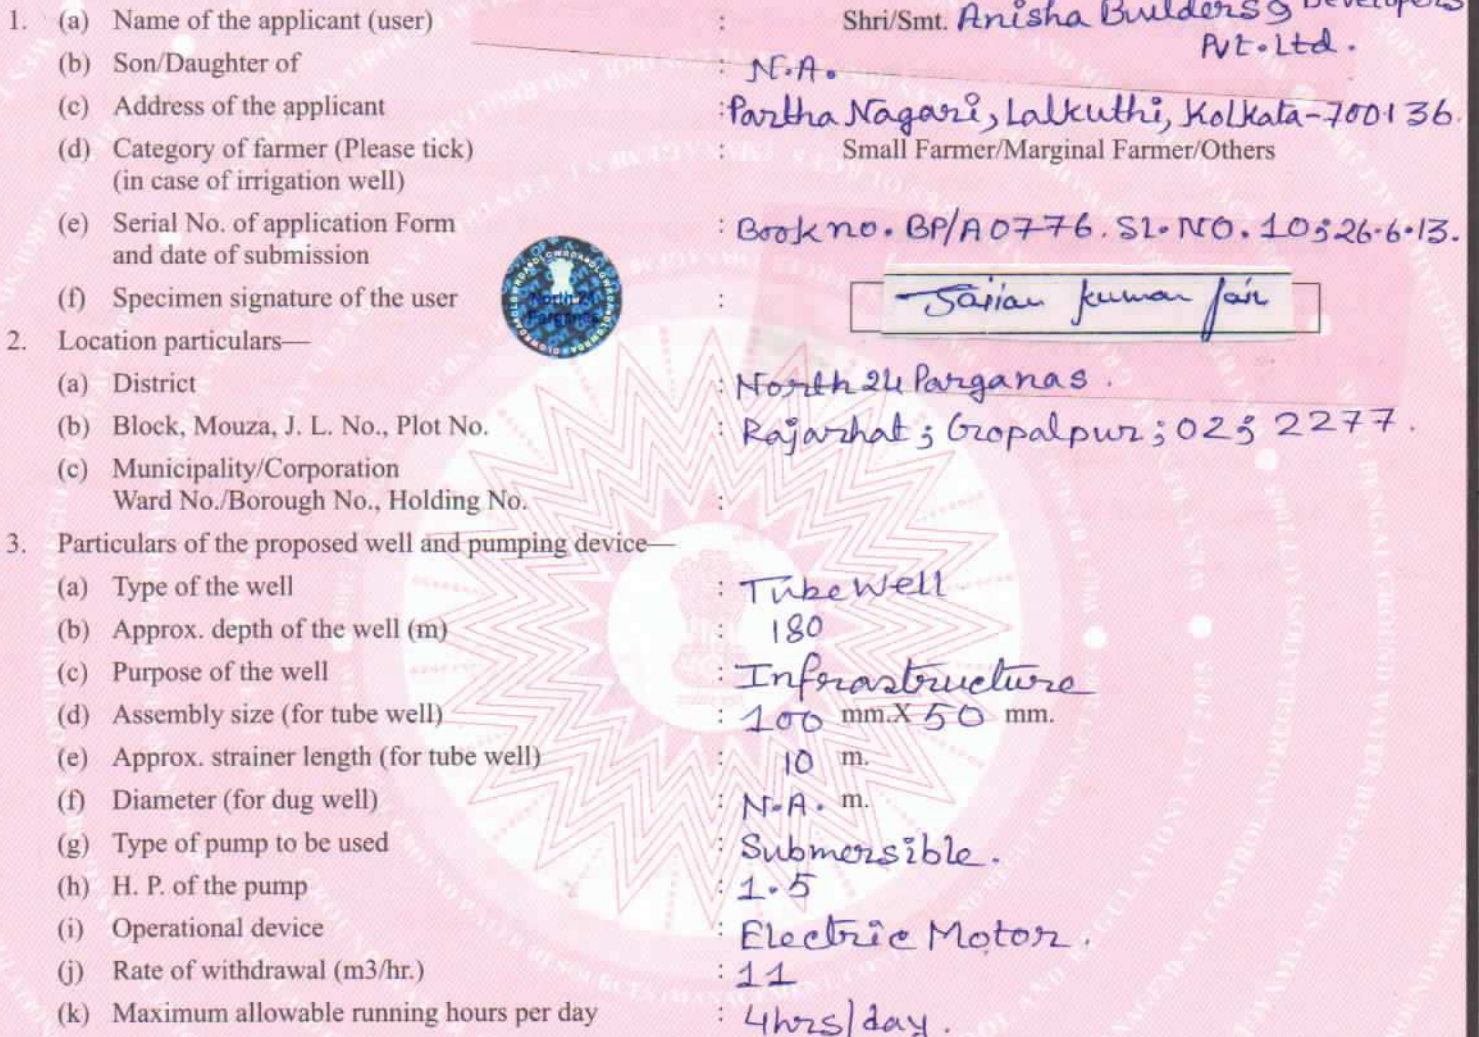 1. (a) Name of the applicant (user) : Shri/Smt. Anisha Builders & Developers
Pvt. Ltd.
(b) Son/Daughter of : N.A.
(c) Address of the applicant : Partha Nagari, Lalkuthi, Kolkata-700136.
(d) Category of farmer (Please tick) : Small Farmer/Marginal Farmer/Others
(in case of irrigation well)
(e) Serial No. of application Form : Book no. BP/A0776. SL. NO. 10; 26.6.13.
and date of submission
(f) Specimen signature of the user : kumar Jain
North 24
Parganas
2. Location particulars—
(a) District : North 24 Parganas.
(b) Block, Mouza, J. L. No., Plot No. : Rajarhat; Gopalpur; 02; 2277.
(c) Municipality/Corporation
Ward No./Borough No., Holding No. :
3. Particulars of the proposed well and pumping device—
(a) Type of the well : Tube Well
(b) Approx. depth of the well (m) : 180
(c) Purpose of the well : Infrastructure
(d) Assembly size (for tube well) : 100 mm.X 50 mm.
(e) Approx. strainer length (for tube well) : 10 m.
(f) Diameter (for dug well) : N.A. m.
(g) Type of pump to be used : Submersible.
(h) H. P. of the pump : 1.5
(i) Operational device : Electric Motor.
(j) Rate of withdrawal (m3/hr.) : 11
(k) Maximum allowable running hours per day : 4hrs/day.